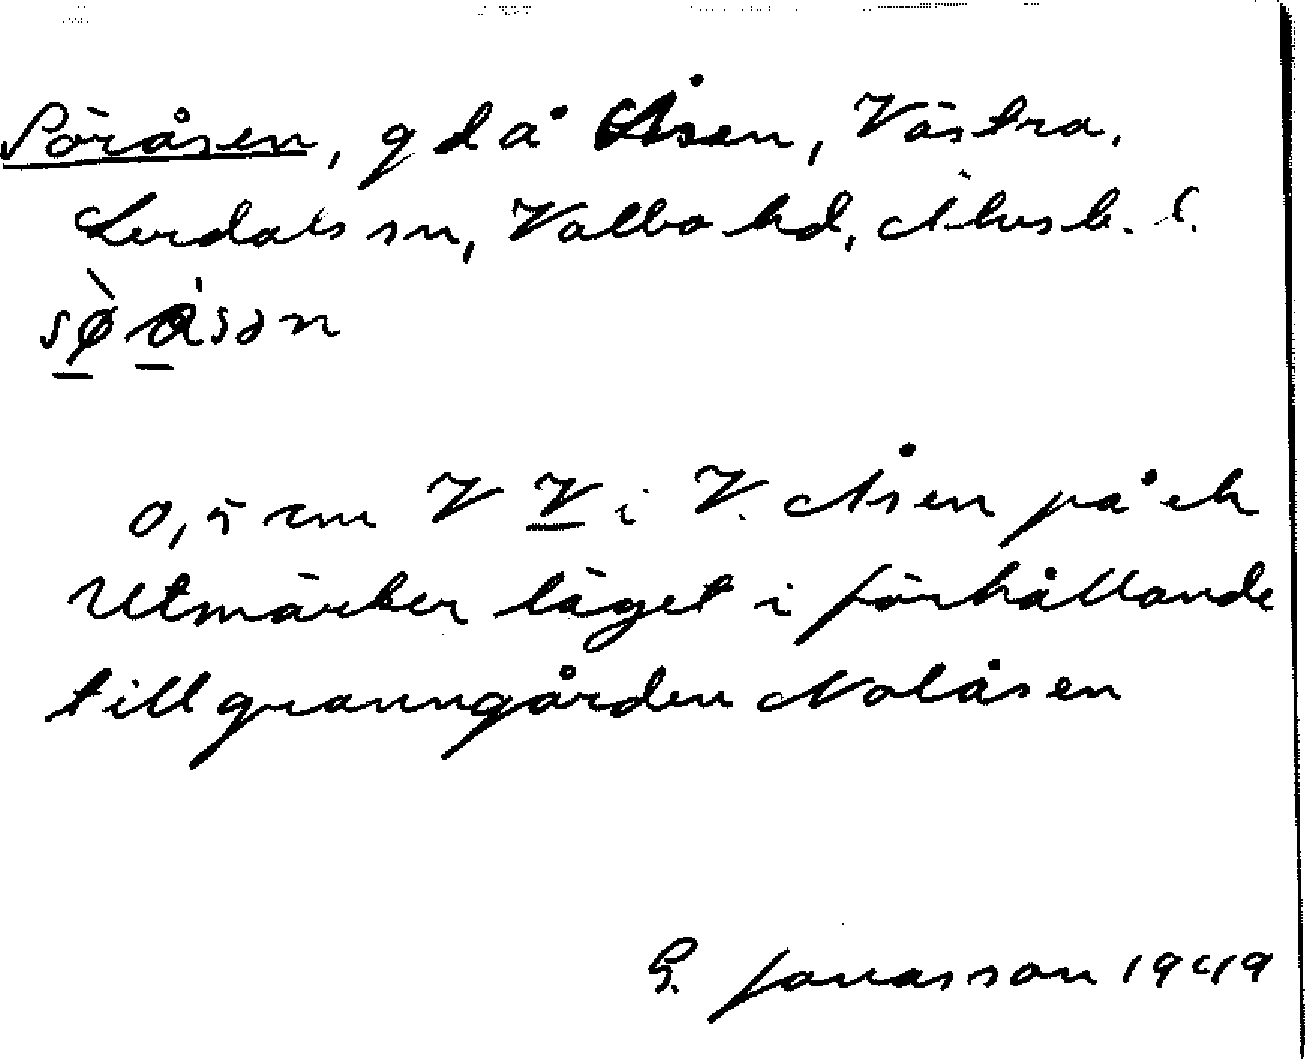 Söråsen, gd å Åsen, Västra,
Lerdals sn, Valbo hd, Älvsb. l.
sø̀ åsən
0,5 cm V V i V. Åsen på ek
Utmärker läget i förhållande
till granngården Nolåsen
G. Jonasson 1949